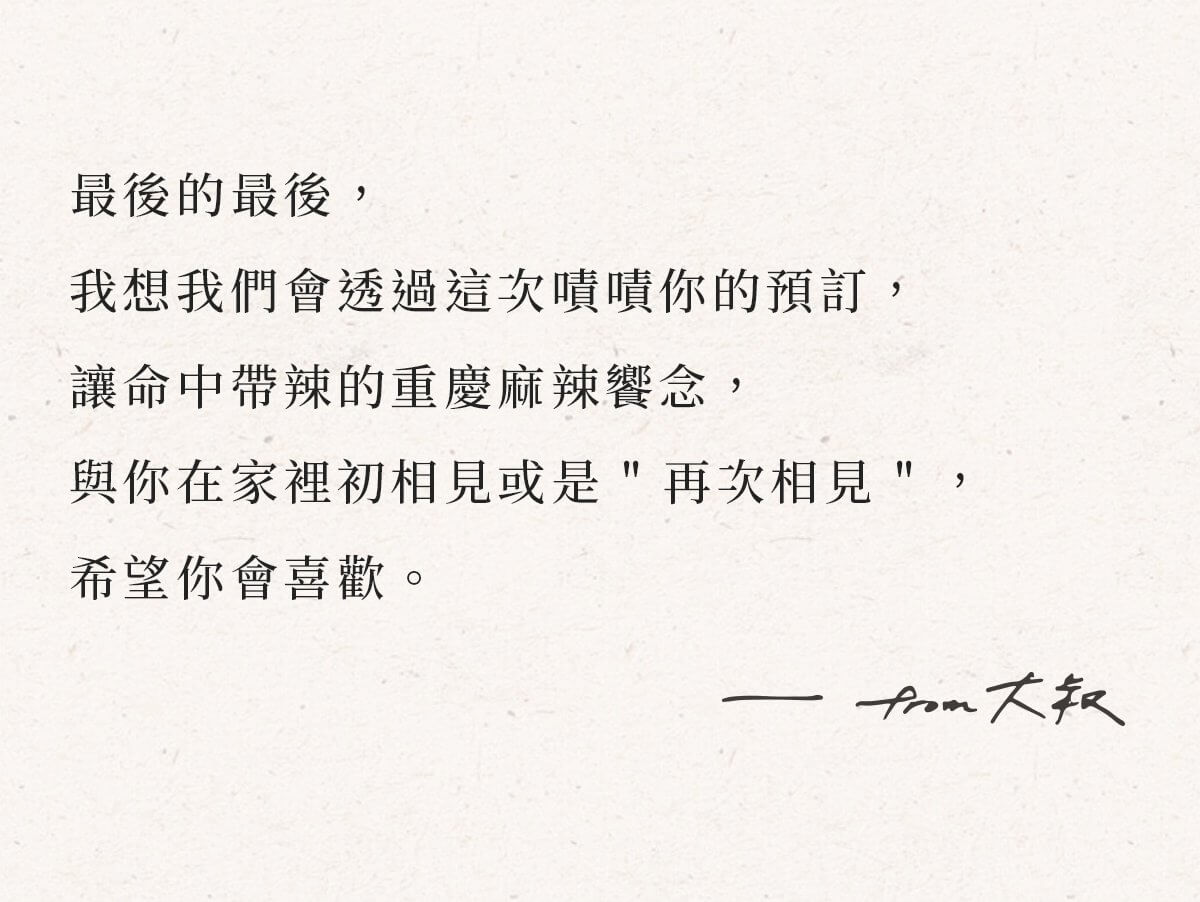 最後的最後，
我想我們會透過這次嘖嘖你的預訂，
讓命中帶辣的重慶麻辣饗念，
與你在家裡初相見或是＂再次相見＂，
希望你會喜歡。
— from大叔